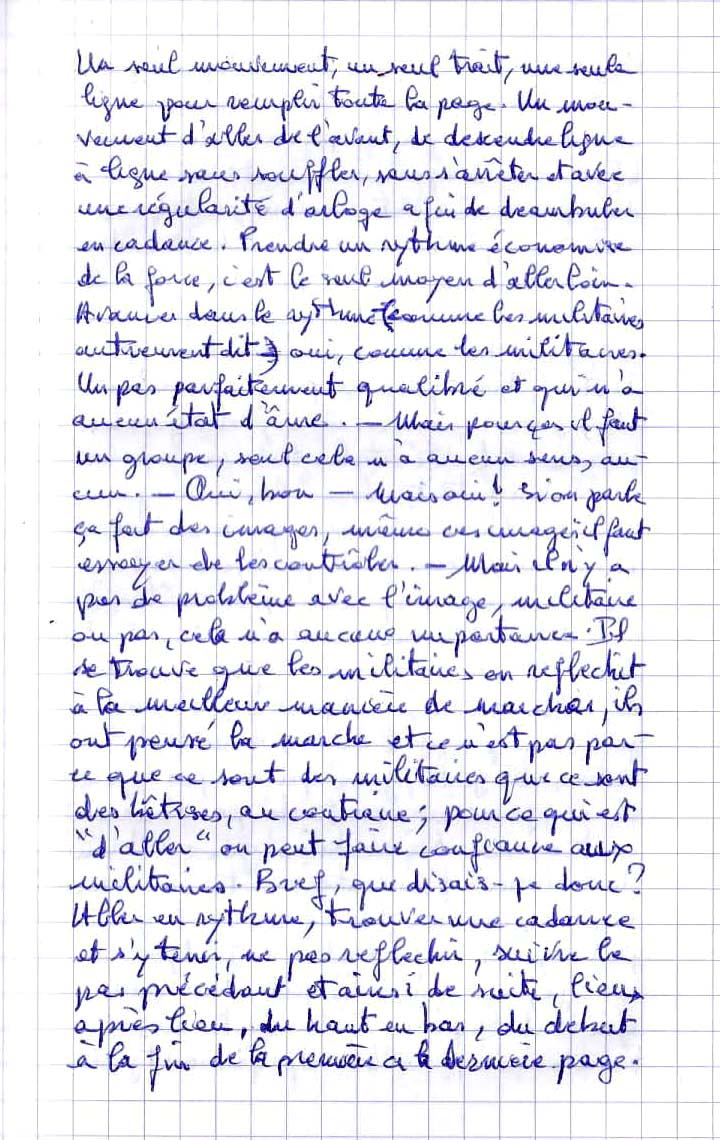 Un seul mouvement, un seul trait, une seule
ligne pour remplir toute la page. Un mou-
vement d'aller de l'avant, de descendre ligne
à ligne sans souffler, sans s'arrêter et avec
une régularité d'orloge afin de deambuler
en cadance. Prendre un rythme économise
de la force, c'est le seul moyen d'aller loin.
Avancer dans le rythme (comme les militaires
autrement dit) oui, comme les militaires.
Un pas parfaitement qualibré et qui n'a
aucun état d'âme. — Mais pour ça il faut
un groupe, seul cela n'a aucun sens, au-
cun. — Oui, bon — Mais oui! Si on parle
ça fait des images, même ces images il faut
essayer de les contrôler. — Mais il n'y a
pas de problème avec l'image, militaire
ou pas, cela n'a aucune importance. Il
se trouve que les militaires on reflechit
à la meilleur manière de marcher, ils
ont pensé la marche et ce n'est pas par-
ce que ce sont des militaires que ce sont
des bêtises, au contraire; pour ce qui est
"d'aller" on peut faire confiance aux
militaires. Bref, que disais-je donc?
Aller en rythme, trouver une cadance
et s'y tenir, ne pas reflechir, suivre le
pas précédant et ainsi de suite, lieu
après lieu, du haut en bas, du debut
à la fin de la première a la dernière page.